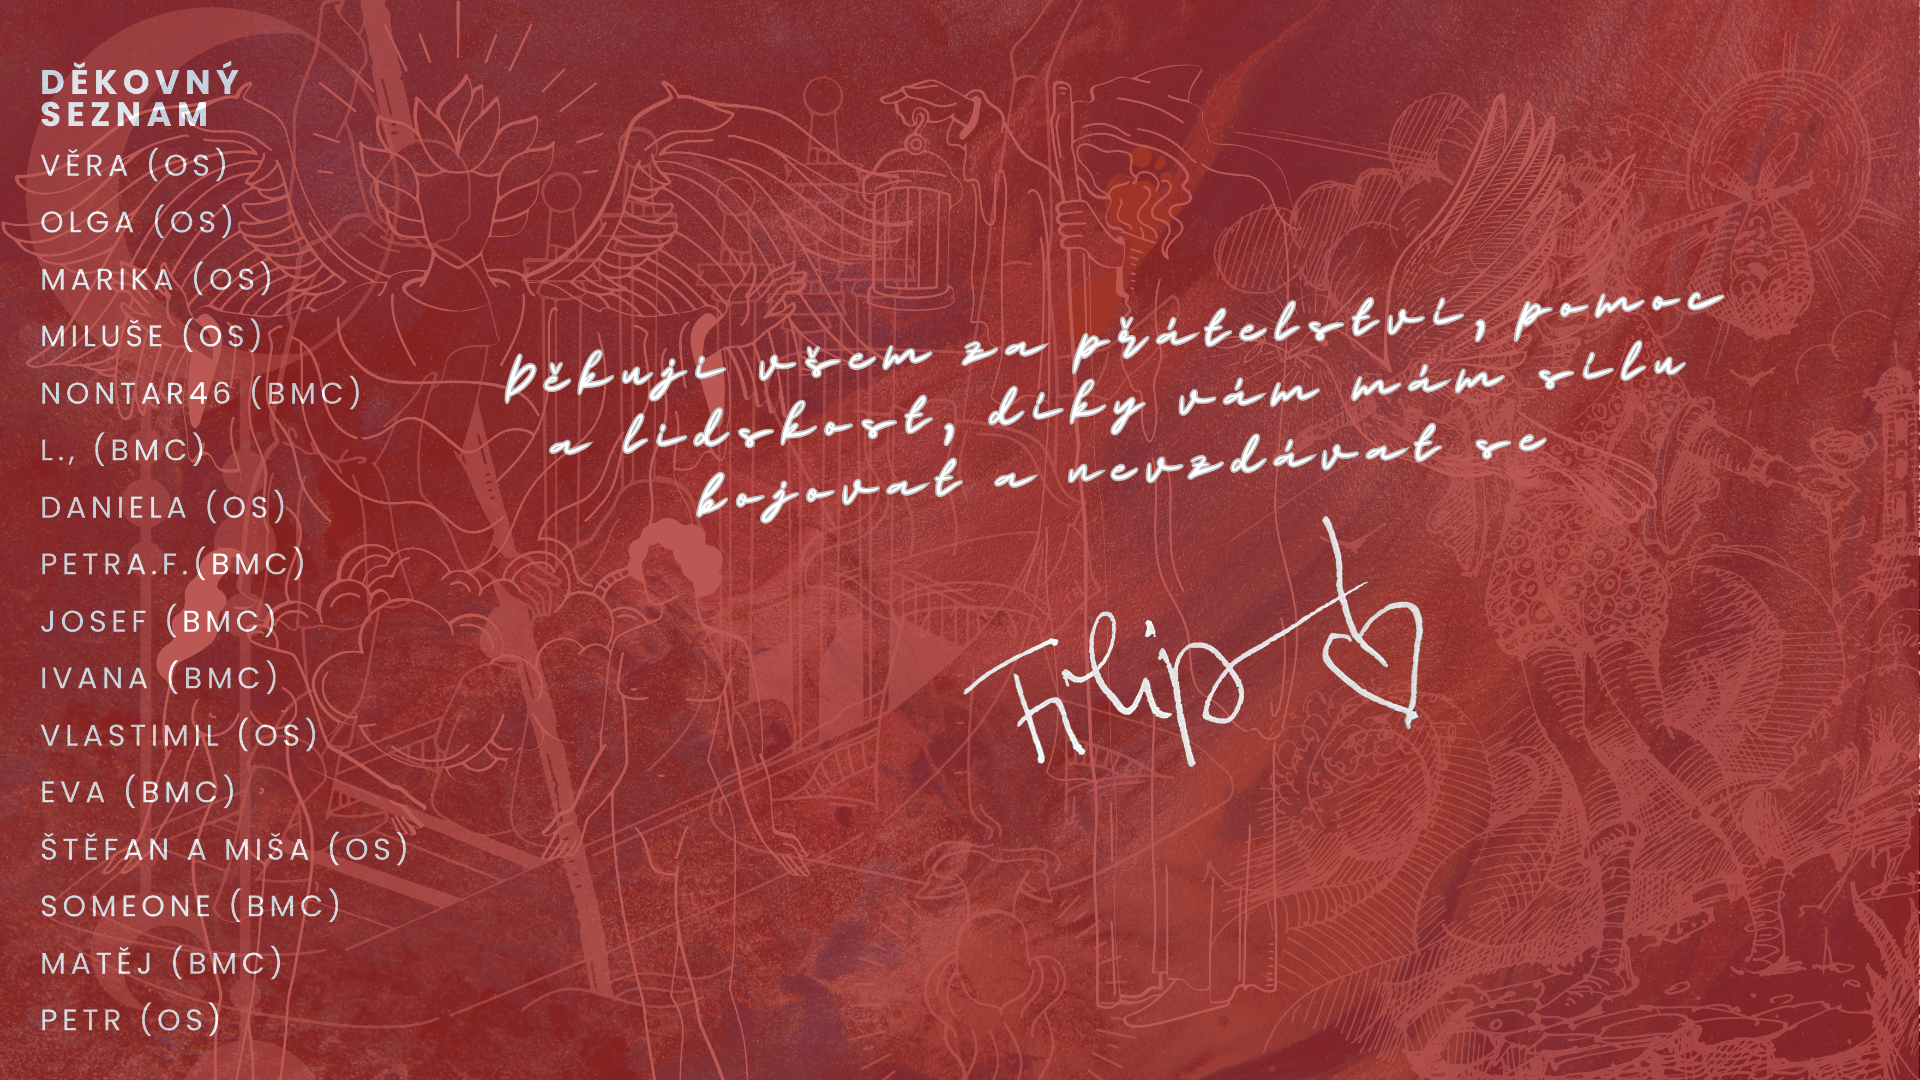 DĚKOVNÝ
SEZNAM
VĚRA (OS)
OLGA (OS)
MARIKA (OS)
MILUŠE (OS)
NONTAR46 (BMC)
L., (BMC)
DANIELA (OS)
PETRA.F.(BMC)
JOSEF (BMC)
IVANA (BMC)
VLASTIMIL (OS)
EVA (BMC)
ŠTĚFAN A MIŠA (OS)
SOMEONE (BMC)
MATĚJ (BMC)
PETR (OS)
Děkuji všem za přátelství, pomoc
a lidskost, díky vám mám sílu
bojovat a nevzdávat se
Filip